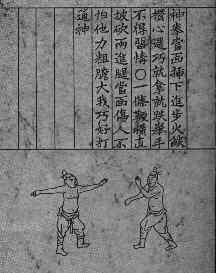 神拳當面插下進步火焰
攢心遇巧就拿就跌舉手
不得留情〇一條鞭橫直
披砍兩進腿當面傷人不
怕他力粗膽大我巧好打
通神